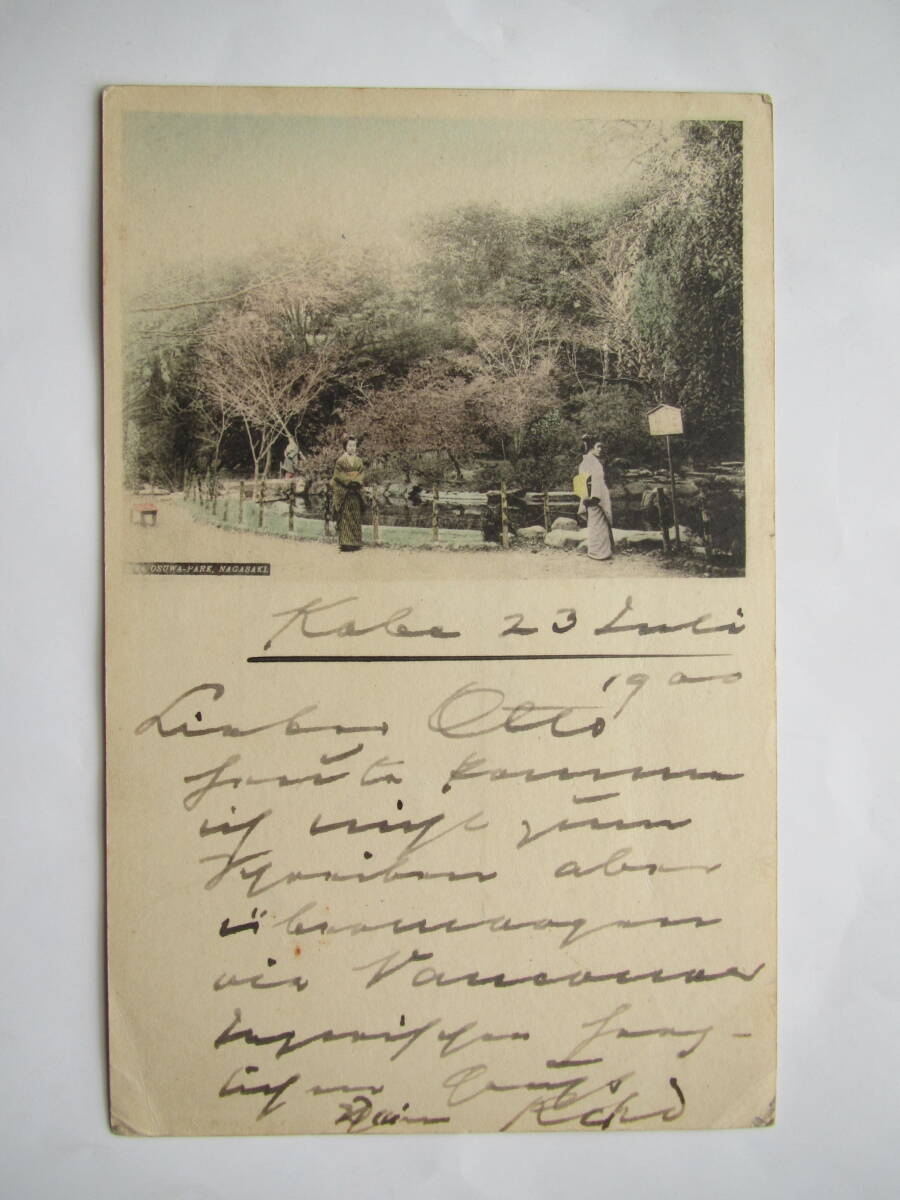 OSUWA-PARK, NAGASAKI.
Kobe 23 Juli
1900
Lieber Otto
heute komme
ich nicht zum
Schreiben aber
übermorgen
via Vancouver
Inzwischen herz-
lichen Gruß
Dein